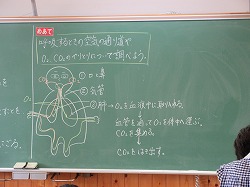 めあて
呼吸するときの空気の通り道や
O₂、CO₂のやりとりについて調べよう。
① 口と鼻
② 気管
③ 肺→O₂を血液中に取り入れる
血管を通ってO₂を体中に運ぶ。
CO₂を集める
→CO₂をはき出す。